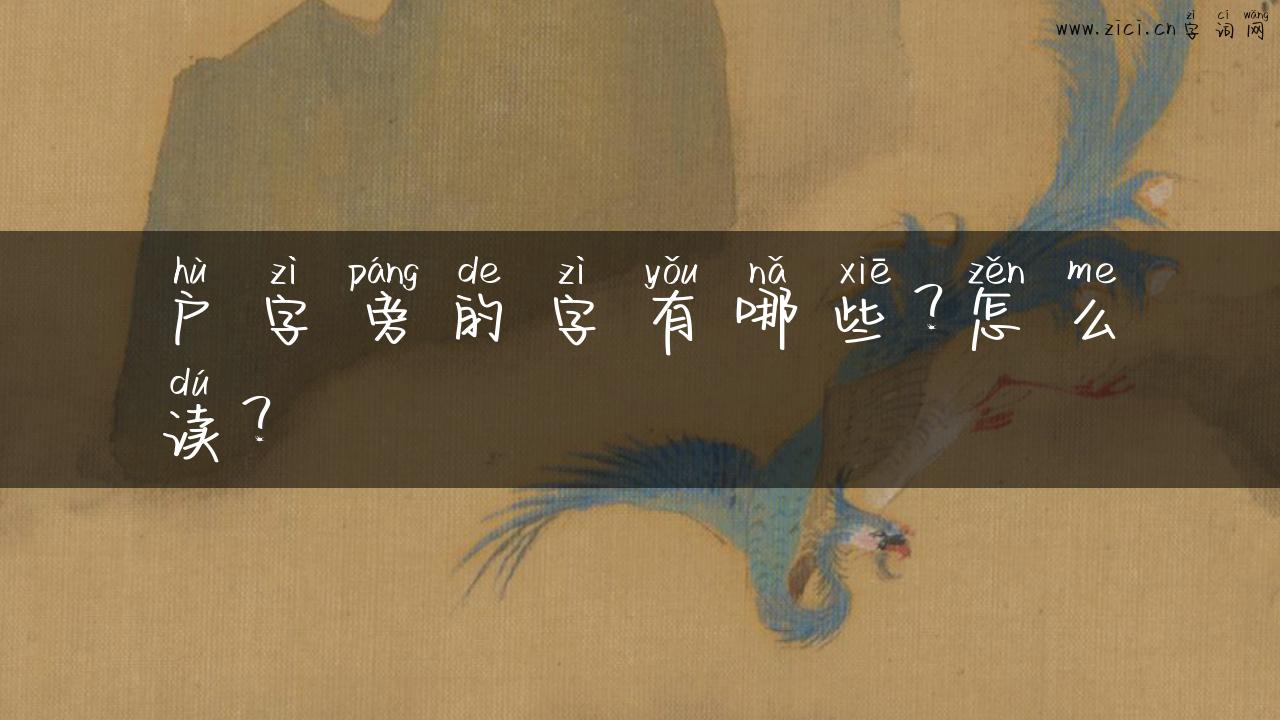 www.zici.cn zì cí wǎng
字词网
hù zì páng de zì yǒu nǎ xiē zěn me
户字旁的字有哪些？怎么
dú
读？